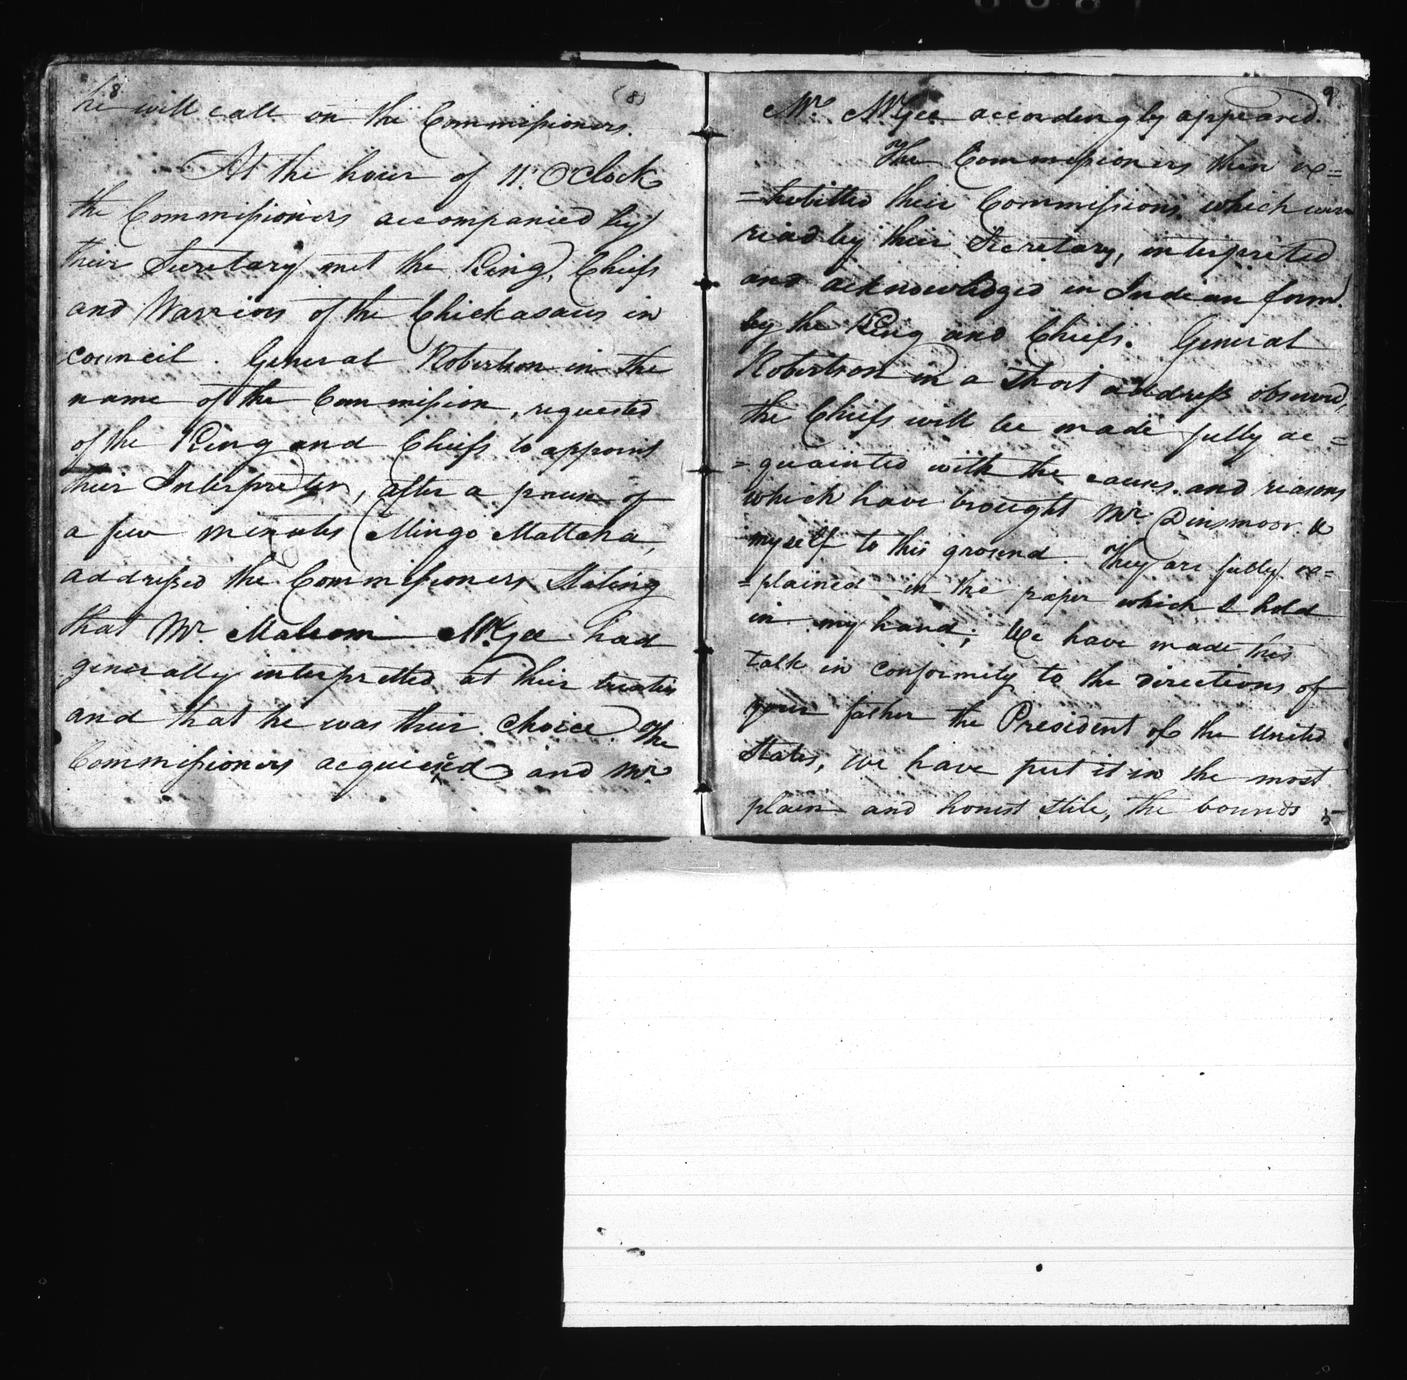 8
(8)
he will call on the Commissioners.
At the hour of 11 O'Clock
the Commissioners accompanied by
their Secretary met the King, Chiefs
and Warriors of the Chickasaws in
council. General Robertson in the
name of the Commission, requested
of the King and Chiefs to appoint
their Interpreter, after a pause of
a few minutes Mingo Mattaha,
addressed the Commissioners Stating
that Mr. Malcom McGee had
generally interpretted at their treaties
and that he was their choice The
Commissioners acquiesced and Mr.
9
Mr. McGee accordingly appeared.
The Commissioners then ex=
=hibitted their Commissions which were
read by their Secretary, interpreted
and acknowledged in Indian form
by the King and Chiefs. General
Robertson in a short address observed,
the Chiefs will be made fully ac=
=quainted with the causes and reasons
which have brought Mr. Dinsmoor &
myself to this ground. They are fully ex=
=plained in the paper which I hold
in my hand; We have made this
talk in conformity to the directions of
your father the President of the United
States, we have put it in the most
plain and honest stile, the bounds